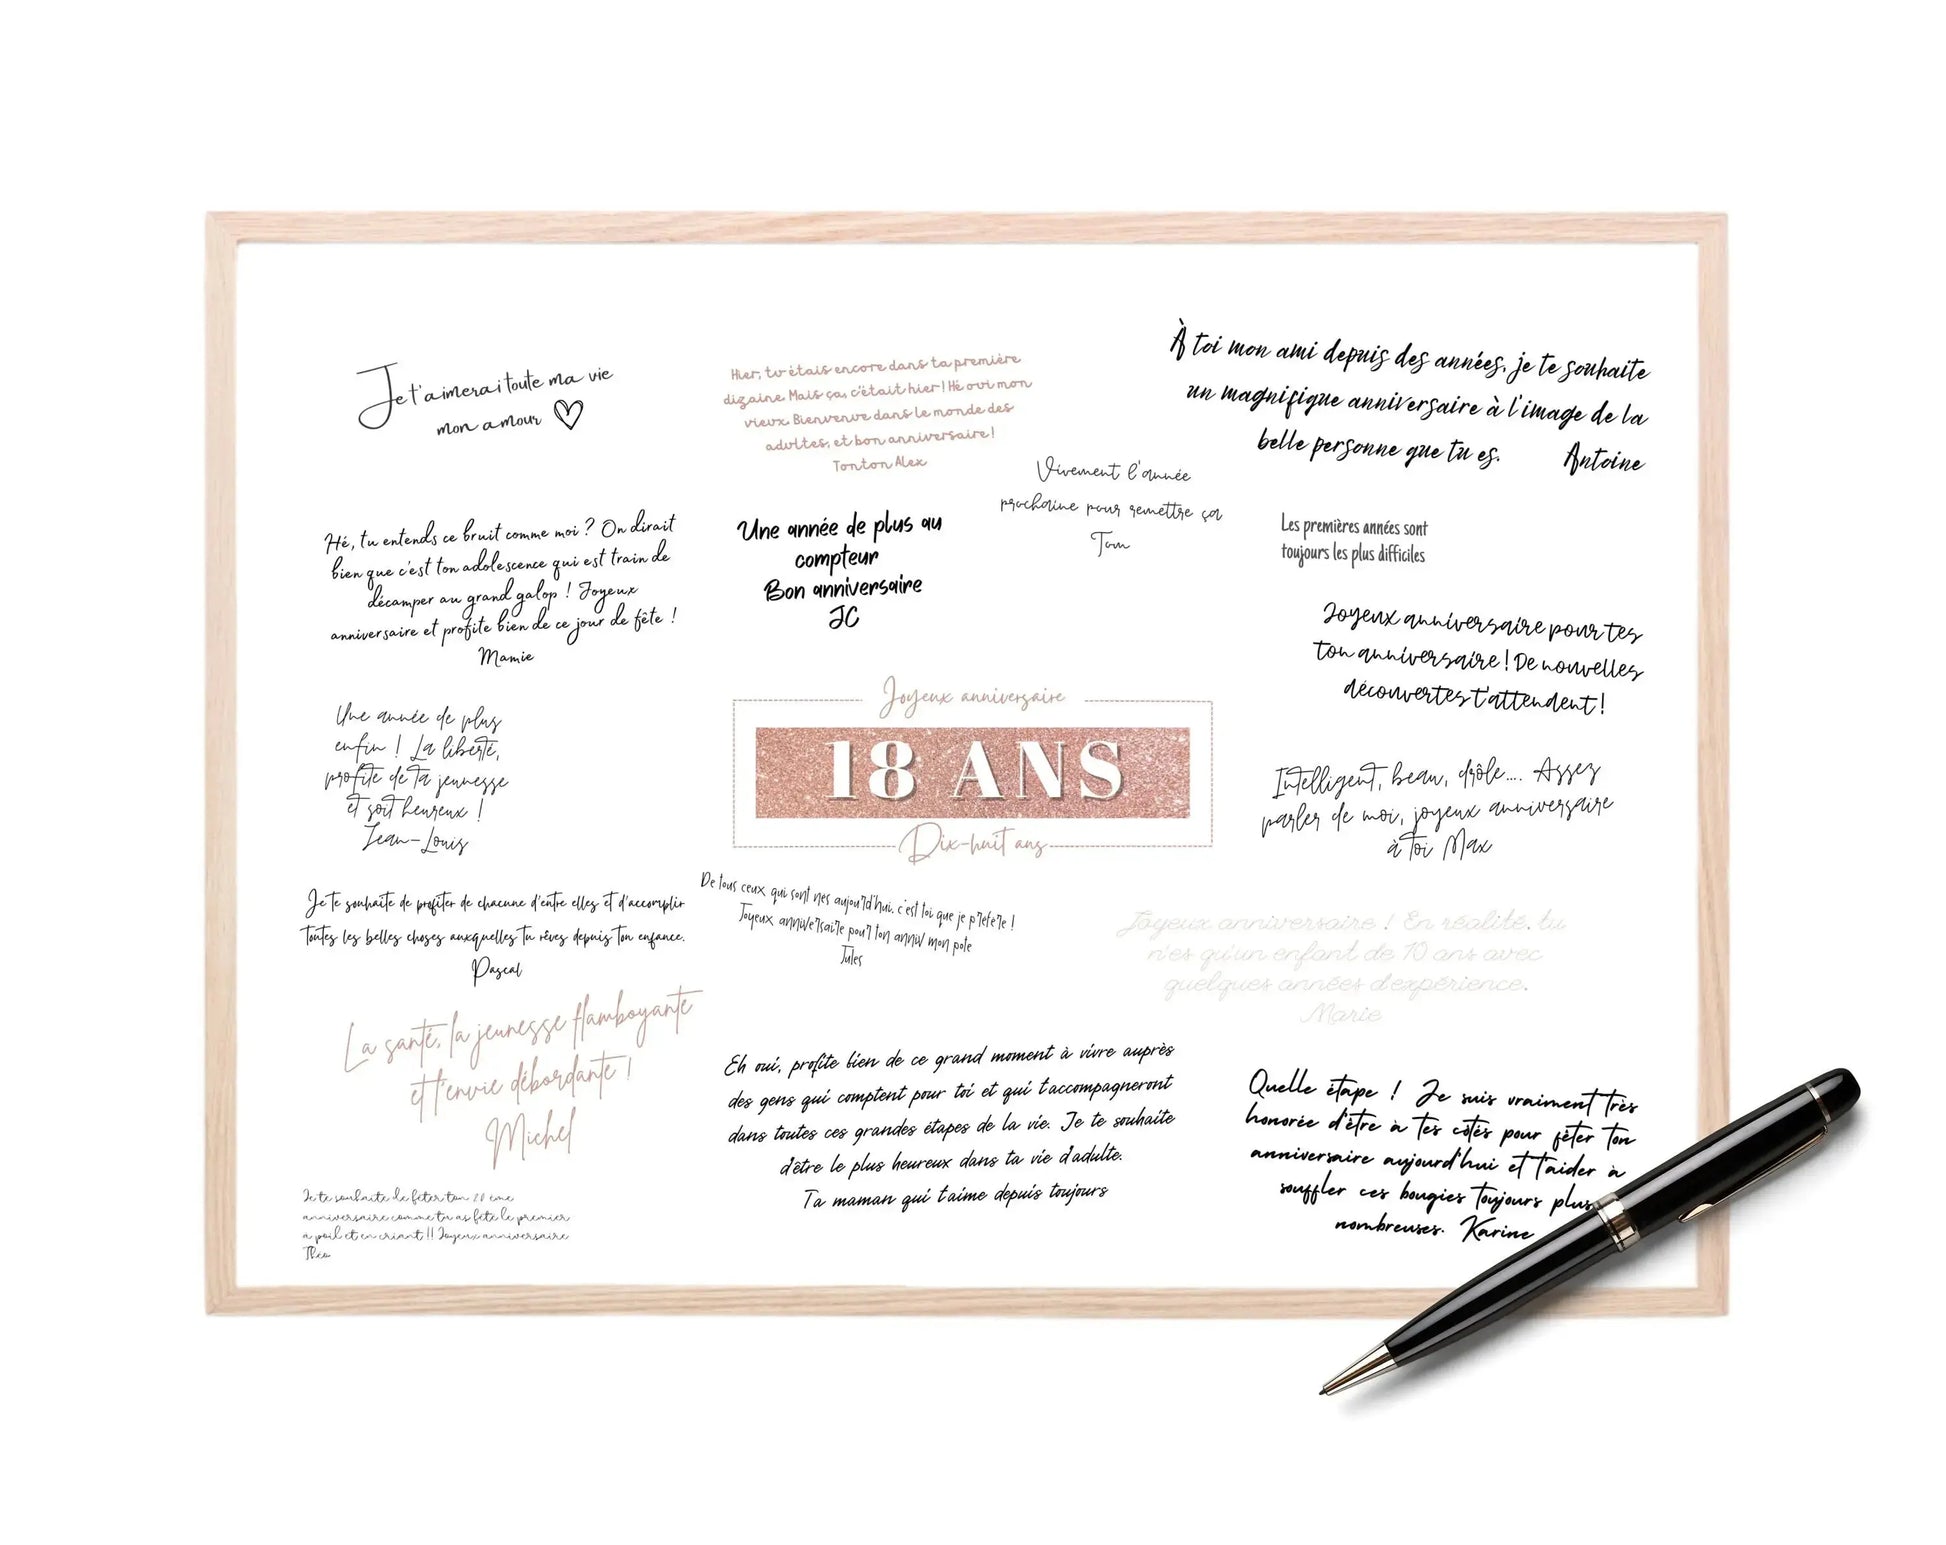 Je t'aimerai toute ma vie
mon amour
Hier, tu étais encore dans ta première
dizaine. Mais ça, c'était hier ! Hé oui mon
vieux. Bienvenue dans le monde des
adultes, et bon anniversaire !
Tonton Alex
À toi mon ami depuis des années, je te souhaite
un magnifique anniversaire à l'image de la
belle personne que tu es. Antoine
Vivement l'année
prochaine pour remettre ça
Tom
Hé, tu entends ce bruit comme moi ? On dirait
bien que c'est ton adolescence qui est train de
décamper au grand galop ! Joyeux
anniversaire et profite bien de ce jour de fête !
Mamie
Une année de plus au
compteur
Bon anniversaire
JC
Les premières années sont
toujours les plus difficiles
Joyeux anniversaire pour tes
ton anniversaire ! De nouvelles
découvertes t'attendent !
Une année de plus
enfin ! La liberté,
profite de ta jeunesse
et soit heureux !
Jean-Louis
Joyeux anniversaire
18 ANS
Dix-huit ans
Intelligent, beau, drôle.... Assez
parler de moi, joyeux anniversaire
à toi Max
Je te souhaite de profiter de chacune d'entre elles et d'accomplir
toutes les belles choses auxquelles tu rêves depuis ton enfance.
Pascal
De tous ceux qui sont nes aujourd'hui, c'est toi que je préfère !
Joyeux anniversaire pour ton anniv mon pote
Jules
Joyeux anniversaire ! En réalité, tu
n'es qu'un enfant de 10 ans avec
quelques années d'expérience.
Marie
La santé, la jeunesse flamboyante
et l'envie débordante !
Michel
Eh oui, profite bien de ce grand moment à vivre auprès
des gens qui comptent pour toi et qui t'accompagneront
dans toutes ces grandes étapes de la vie. Je te souhaite
d'être le plus heureux dans ta vie d'adulte.
Ta maman qui t'aime depuis toujours
Quelle étape ! Je suis vraiment très
honorée d'être à tes côtés pour fêter ton
anniversaire aujourd'hui et t'aider à
souffler ces bougies toujours plus
nombreuses. Karine
Je te souhaite de fêter ton 20 ème
anniversaire comme tu as fêté le premier
a poil et en criant !! Joyeux anniversaire
Théo